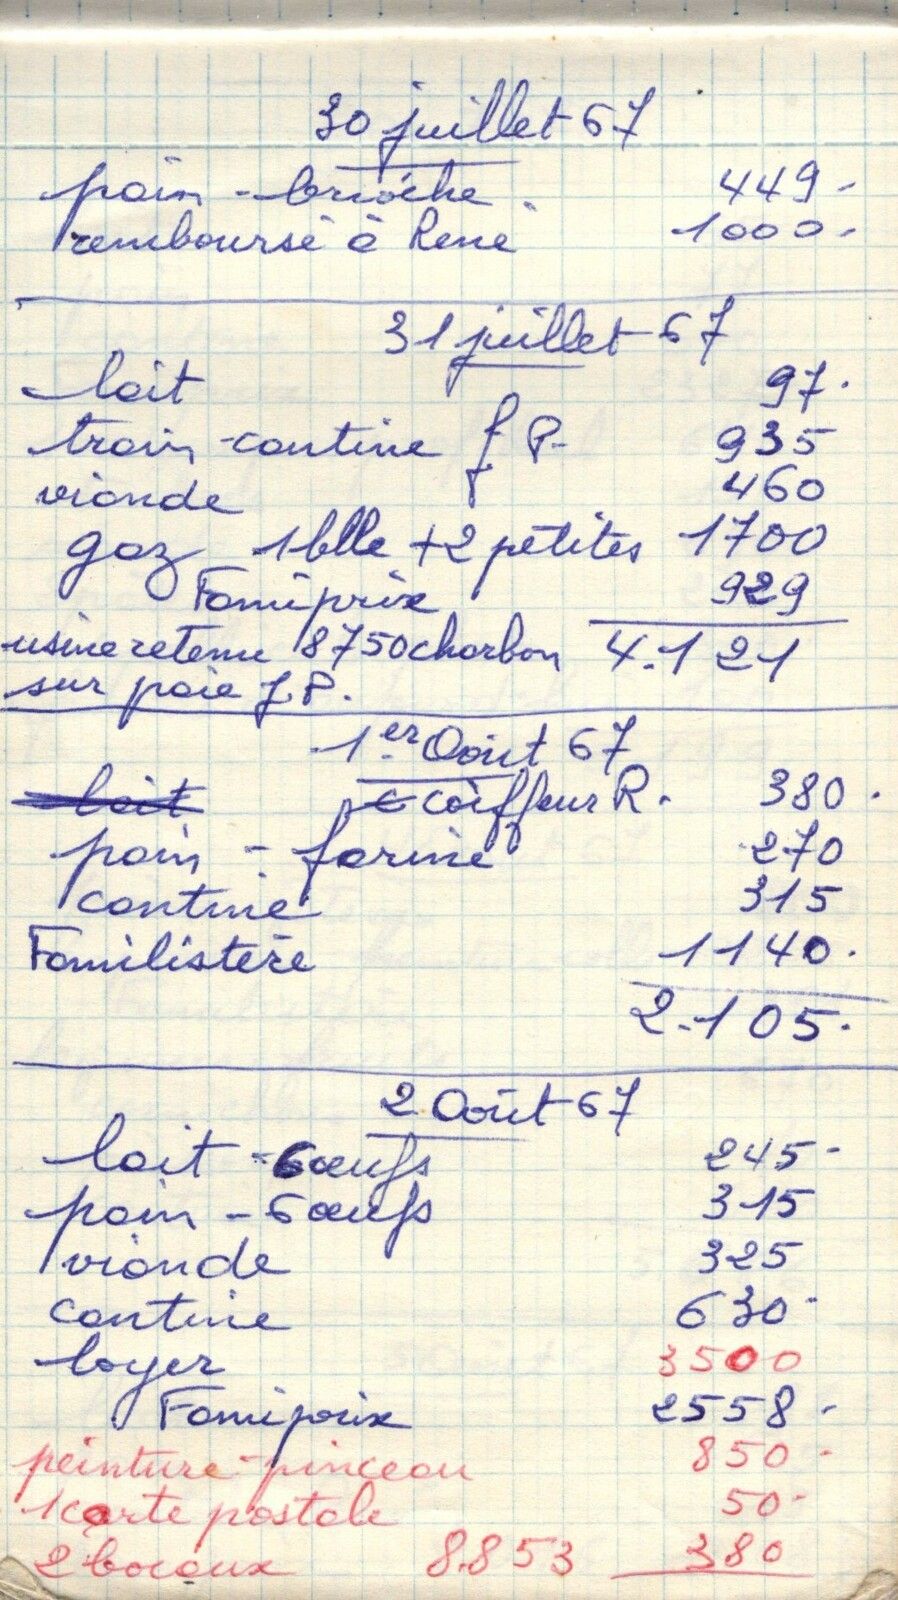 30 juillet 67
pain - brioche 449.
remboursé à René 1000.
31 juillet 67
lait 97.
train-cantine J P. 935
viande 460
gaz 1 blle + 2 petites 1700
Famiprix 929
usine retenu 8750 charbon 4.121
sur paie J.P.
1er Août 67
lait coiffeur R. 380.
pain - farine 270
cantine 315
Familistère 1140.
2.105.
2 Août 67
lait - 6 œufs 245-
pain - 6 œufs 315
viande 325
cantine 630-
loyer 3500
Famiprix 2558-
peinture-pinceau 850-
1 carte postale 50-
2 bocaux 8.853 380